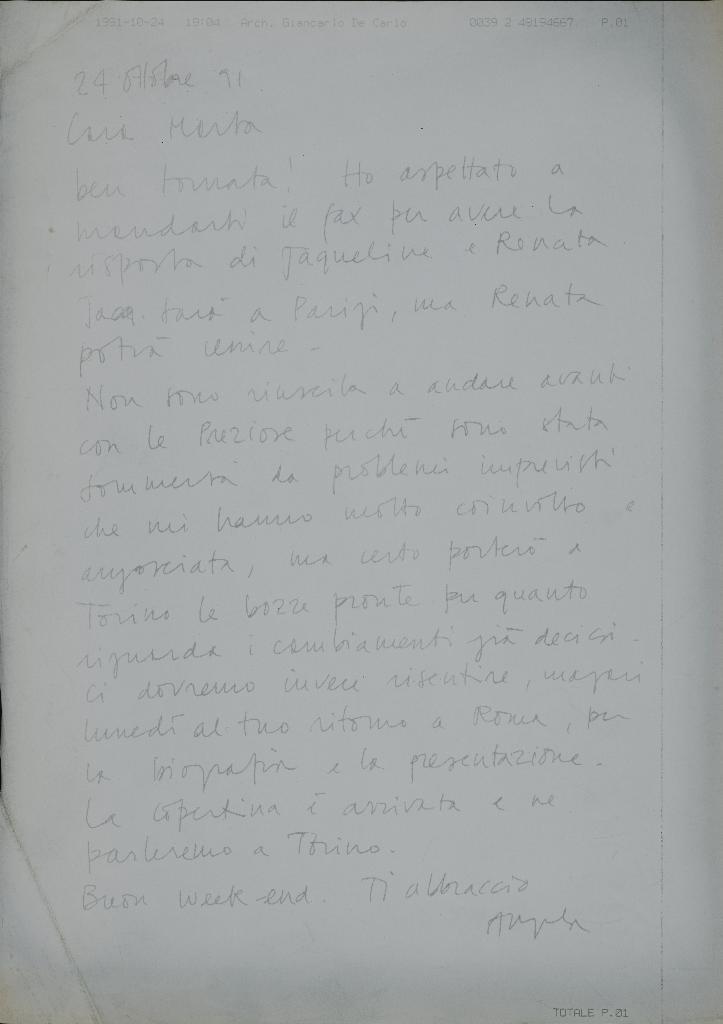 1991-10-24 19:04 Arch. Giancarlo De Carlo 0039 2 48194667 P.01
24 Ottobre 91
Cara Marta
ben tornata! Ho aspettato a
mandarti il fax per avere la
risposta di Jaqueline e Renata
Jaqq. sarà a Parigi, ma Renata
potrà venire -
Non sono riuscita a andare avanti
con le Preziose perchè sono stata
sommersa da problemi imprevisti
che mi hanno molto coinvolto e
angosciata, ma certo porterò a
Torino le bozze pronte per quanto
riguarda i cambiamenti già decisi -
ci dovremo invece risentire, magari
lunedì al tuo ritorno a Roma, per
la biografia e la presentazione.
La copertina è arrivata e ne
parleremo a Torino.
Buon week-end. Ti abbraccio
Angela
TOTALE P.01